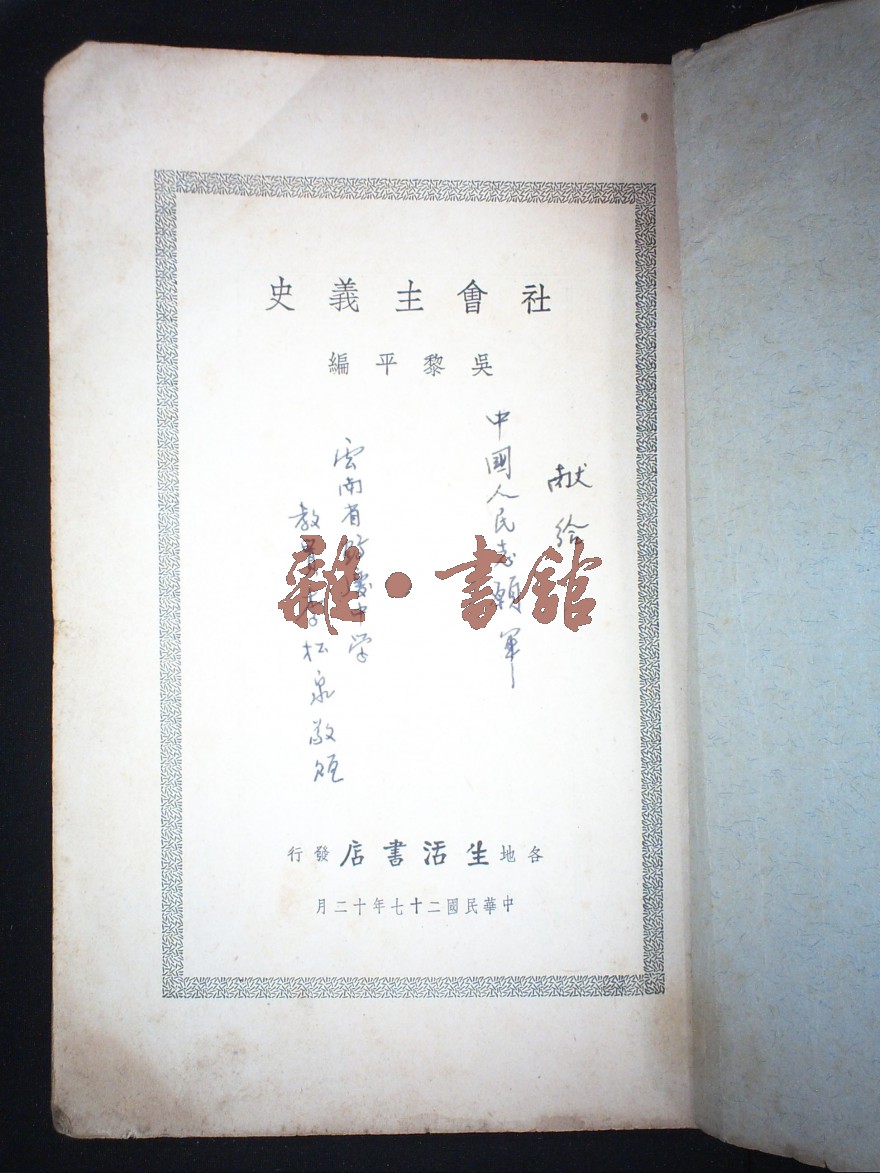 社會主義史
吳黎平編
献给
中國人民志願軍
雲南省中学
教員松泉敬贈
雜·書館
各地生活書店發行
中華民國二十七年十二月